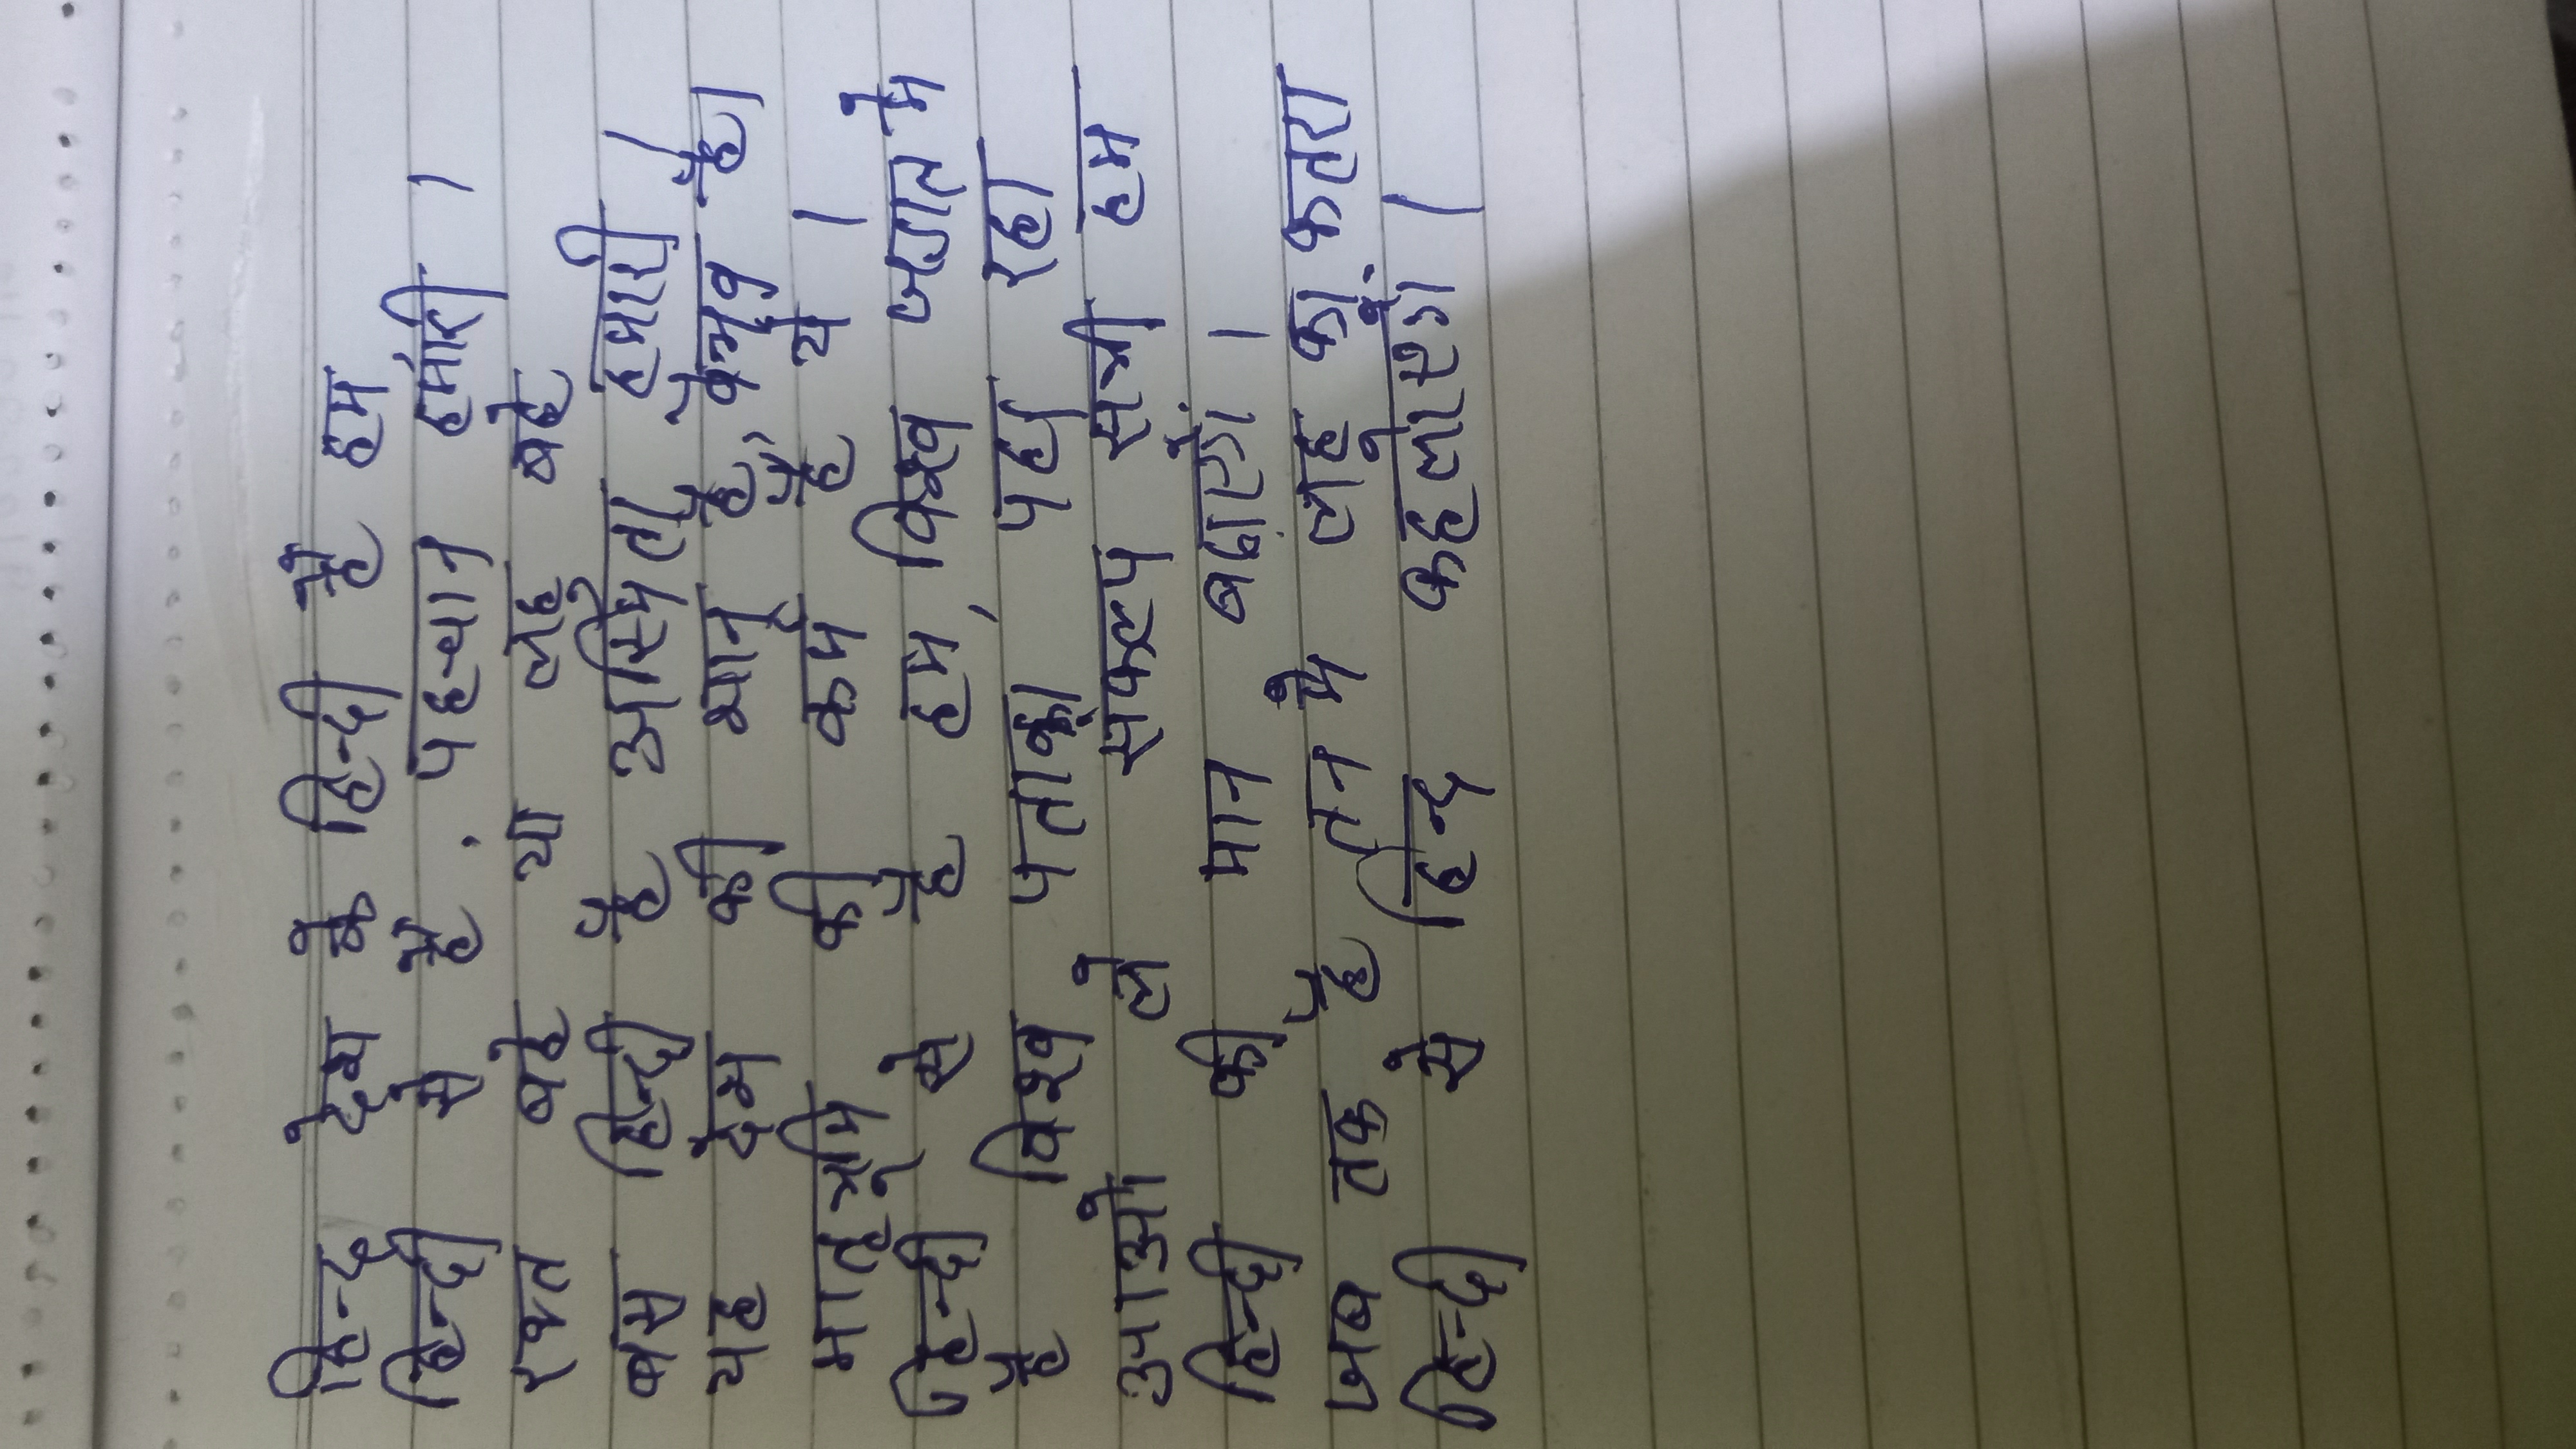 हिन्द देश के हिन्दी है हम
हिन्दी से है, पहचान हमारी ।
रक्त बहे या लहू बहे
बस हिन्दी है अस्मिता हमारी ।
यह देश की शान है, वैभव है।
मातृभूमि की कम है, ये ।
हिन्दी से है हम, विश्व ज्ञात में
है विश्व पताका पढ़ रहा
आओ ले सकल्प सभी हम
हिन्दी की मान बढ़ाएगें ।
जब तक है तन में लोहू का कतरा
हिन्दी से हिन्द कहलाएगें ।